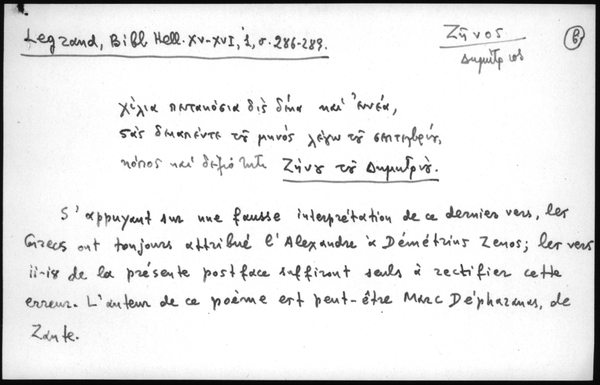 Legrand, Bibl Hell. XV-XVI, 1, σ. 286-289.
Ζῆνος
Δημήτριος
β
χίλια πεντακόσια δὶς δέκα καὶ ἐννέα,
'ς τὰς δεκαπέντε τοῦ μηνὸς λέγω τοῦ σεπτεβρίου,
κόπος καὶ Ζήνου τοῦ Δημητρίου.
S'appuyant sur une fausse interprétation de ce dernier vers, les
Grecs ont toujours attribué l'Alexandre à Démétrius Zenos; les vers
11-18 de la présente postface suffiront seuls à rectifier cette
erreur. L'auteur de ce poème est peut-être Marc Dépharanas, de
Zante.